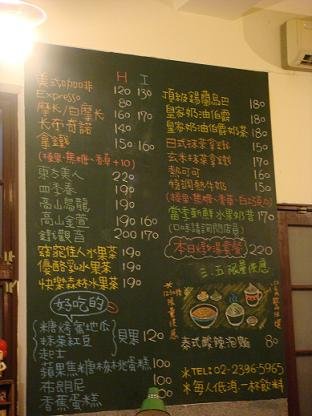 H I
美式咖啡 120 130
Espresso 80
摩卡/白摩卡 160 170
卡布奇諾 140
拿鐵 150 160
(榛果.焦糖.香草+10)
東方美人 220
四季春 190
高山烏龍 190
高山金萱 190 160
鐵觀音 200 170
窈窕佳人水果茶 190
優酪乳水果茶 190
快樂森林水果茶 190
好吃的
糖烤蜜地瓜
抹茶紅豆
起士
貝果 120
蘋果焦糖核桃北蛋糕 100
布朗尼 100
香蕉蛋糕 100
頂級錫蘭烏巴 180
皇家奶油伯爵 180
皇家奶油伯爵奶茶 180
日式抹茶拿鐵 150
玄米抹茶拿鐵 170
熱可可 160
特調熱牛奶 150
當季新鮮水果奶昔 170
(口味請詢問店員)
本日煲湯套餐 220
三.五限量供應
泰式酸辣泡麵 80
※TEL:02-2396-5965
※每人低消.一杯飲料